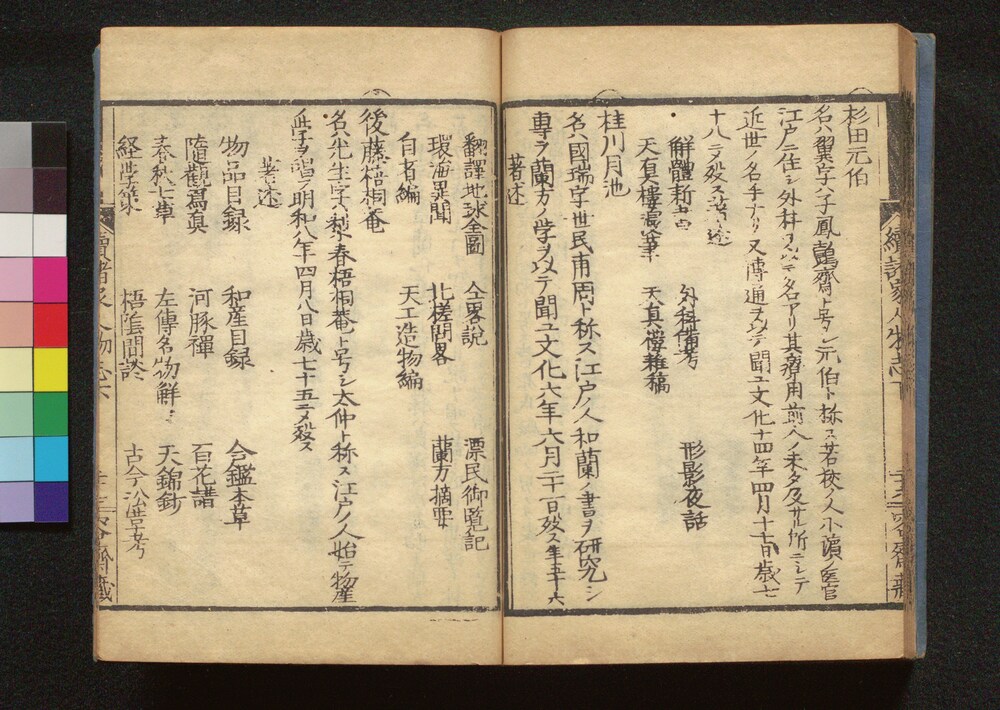 杉田元伯
名ハ翼字ハ子鳳鷧齋ト号シ元伯ト称ス若校ノ人小濵ノ医官
江戸ニ住シ外科ヲ以テ名アリ其齊用前人ノ未タ及サル所ニシテ
近世ノ名手ナリ又博通ヲ以テ聞ユ文化十四年四月十七日歳七
十八ニテ歿ス著述
解體新書 外科備考 形影夜話
天有樓漫筆 天真樓雜稿
桂川月池
名ハ國瑞字世民甫周ト称ス江戸ノ人和蘭ノ書ヲ研究シ
専ラ蘭方ノ学ヲ以テ聞ユ文化六年六月二十一日歿ス年五十六
著述
翻譯地球全圖 仝畧説 漂民御覧記
環海異聞 北槎聞畧 蘭方摘要
白者編 天工造物編
後藤梧桐菴
名ハ光生字ハ梨春梧桐菴ト号シ太仲ト称ス江戸ノ人始テ物産
学ヲ唱フ明和八年四月八日歳七十五ニメ歿ス
著述
物品目録 和産目録 合鑑本草
隨觀寫真 河豚禪 百花譜
春秋七草 左傳名物解 天錦鈔
経学策 梧陰間談 古今沿革考
續諸家人物志下
續諸家人物志下